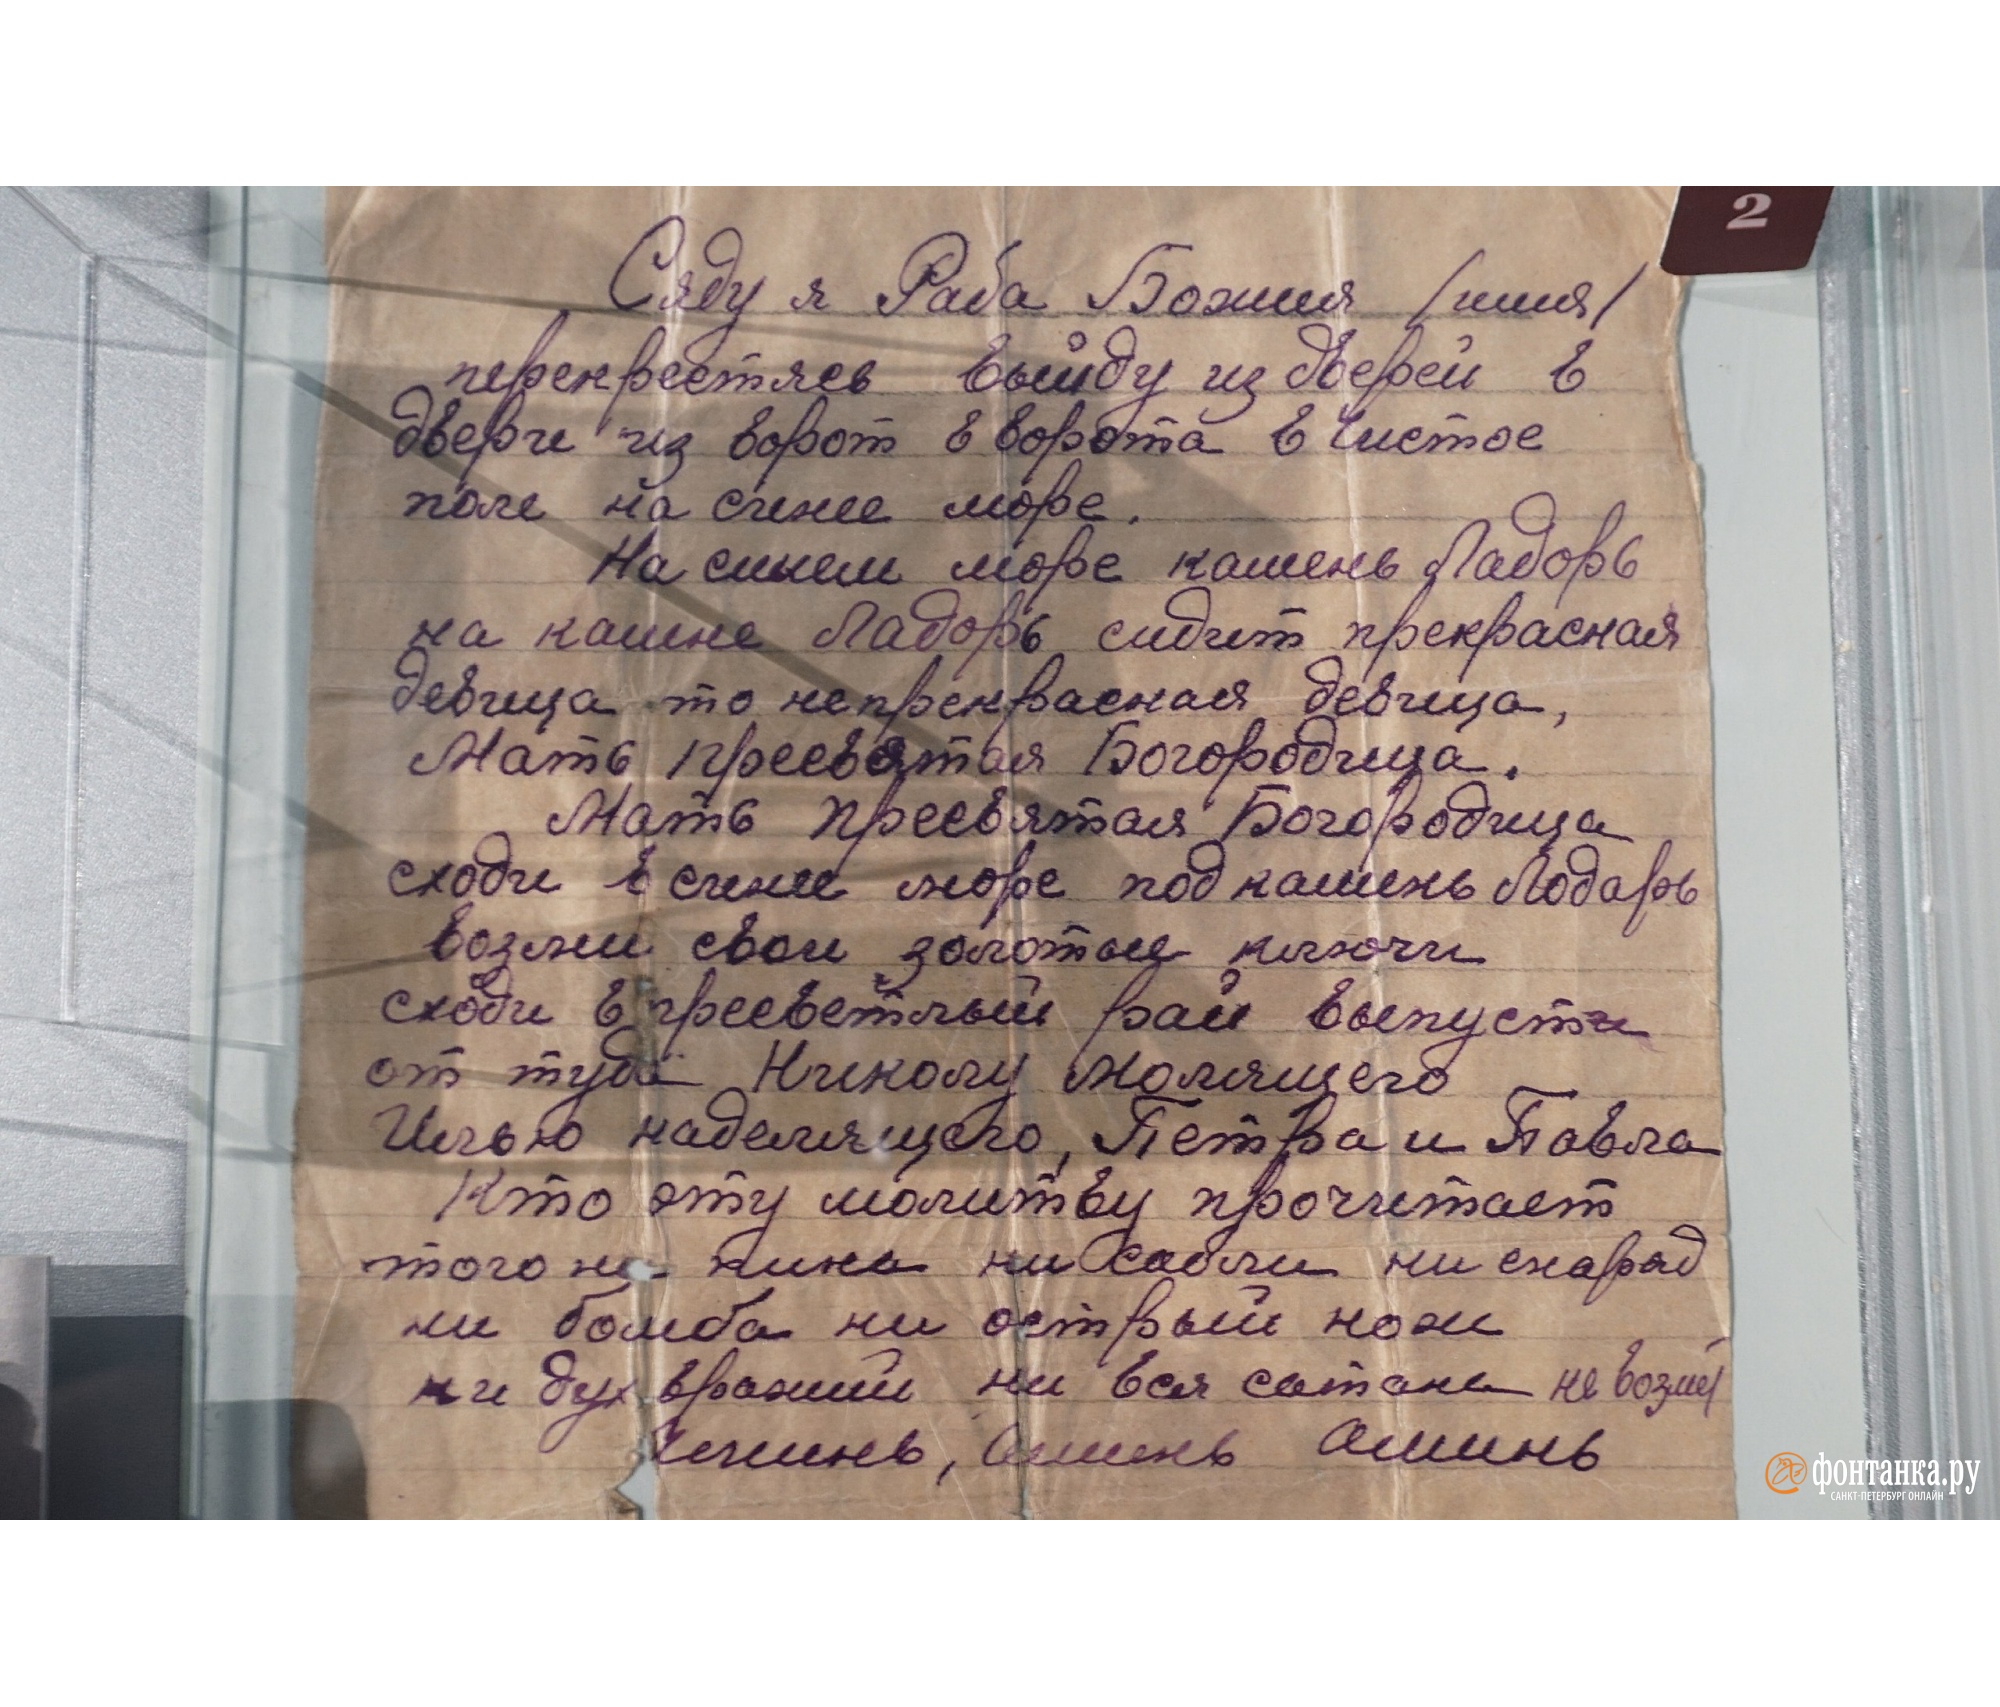 2
Сяду я Раба Божия /имя/
перекрестясь выйду из дверей в
двери из ворот в ворота в чистое
поле на сине море.
На синем море камень Ладорь
на камне Ладорь сидит прекрасная
девица то не прекрасная девица,
Мать пресвятая Богородица.
Мать пресвятая Богородица
сходи в сине море под камень Лодарь
возьми свои золотые ключи
сходи в пресветлый рай выпусти
от туда Николу молящего
Илью наделящего, Петра и Павла
Кто эту молитву прочитает
того ни пика ни сабли ни снаряд
ни бомба ни острый нож
ни дух вражий ни вся сатана не возмё
Аминь, аминь Аминь
фонтанка.ру
САНКТ-ПЕТЕРБУРГ ОНЛАЙН